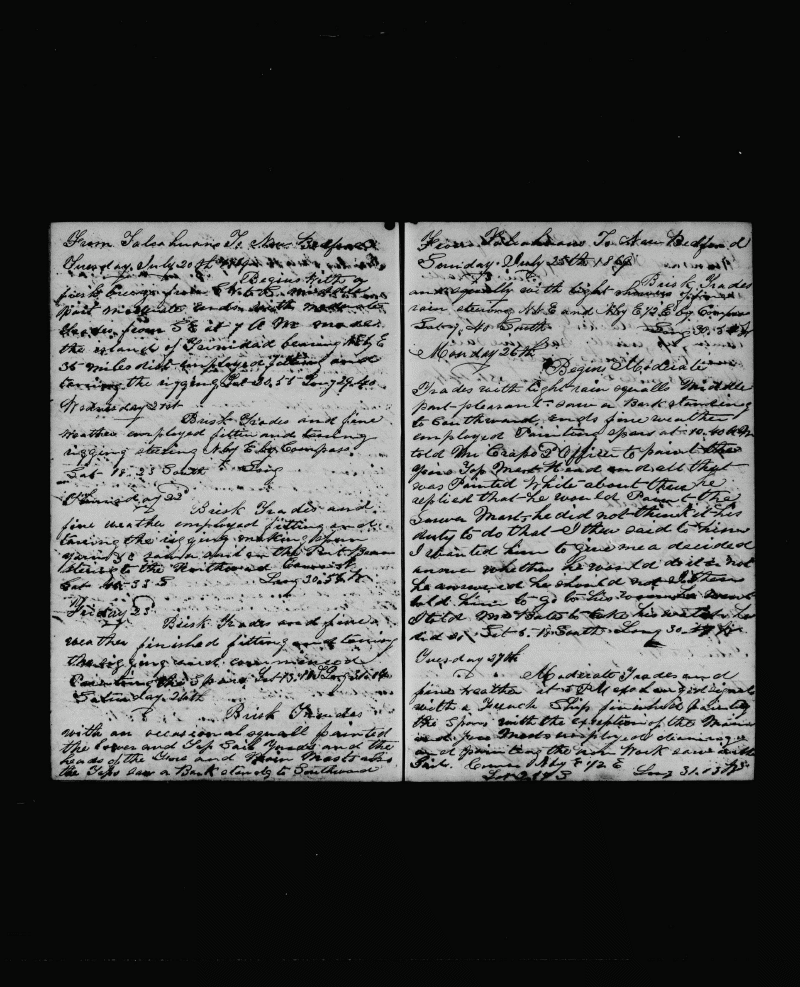 From Talcahuano To New Bedford
Tuesday July 20th
Begins with a
fresh breeze from middle
part moderate ends with moderate
trades from S E at 7 A M made
the island of Trinidad bearing N by E
35 miles dist employed fitting and
tarring the rigging Lat 20.51 Long 29.40
Wednesday 21st
Brisk Trades and fine
weather employed fitting and tarring
rigging steering N by E by Compass
Lat 18.23 South Long
Thursday 22
Brisk Trades and
fine weather employed fitting and
tarring the rigging making spun
yarn &c saw a sail on the Port Beam
steering to the Northward Course N
Lat 33 S Long 30.58 W
Friday 23
Brisk Trades and fine
weather finished fitting and tarring
the rigging and commenced
Painting the Spars Lat 13 Long
Saturday 24th
Brisk Trades
with an occasional squall painted
the lower and Top Sail Yards and the
heads of the Fore and Main Masts also
the Tops saw a Bark standg to Southward
From Talcahuano To New Bedford
Sunday July 25th 1869
Brisk Trades
and squally with light
rain steering N by E 1/2 E by Compass
South Long 30.
Monday 26th
Begins Moderate
Trades with light rain squalls Middle
part pleasant saw a Bark standing
to Southward, ends fine weather
employed Painting spars at 10.40 A M
told Mr Crapo 2 Officer to paint the
Fore Top Mast Head and all that
was Painted White about there he
replied that he would Paint the
Lower Mast he did not think it his
duty to do that I then said to him
I wanted him to give me a decided
answer whether he would do it or not
he answered he should not I then
told him to go to his room
I told Mr Bates to take his watch he
did so Lat 5. South Long 30.
Tuesday 27th
Moderate Trades and
fine weather at 5 P M exchanged signals
with a French Ship finished painting
the Spars with the exception of the Main
and fore Masts employed cleaning
and painting the Work saw
Sail. Course N by E 1/2 E
Lat S Long 31.13 W